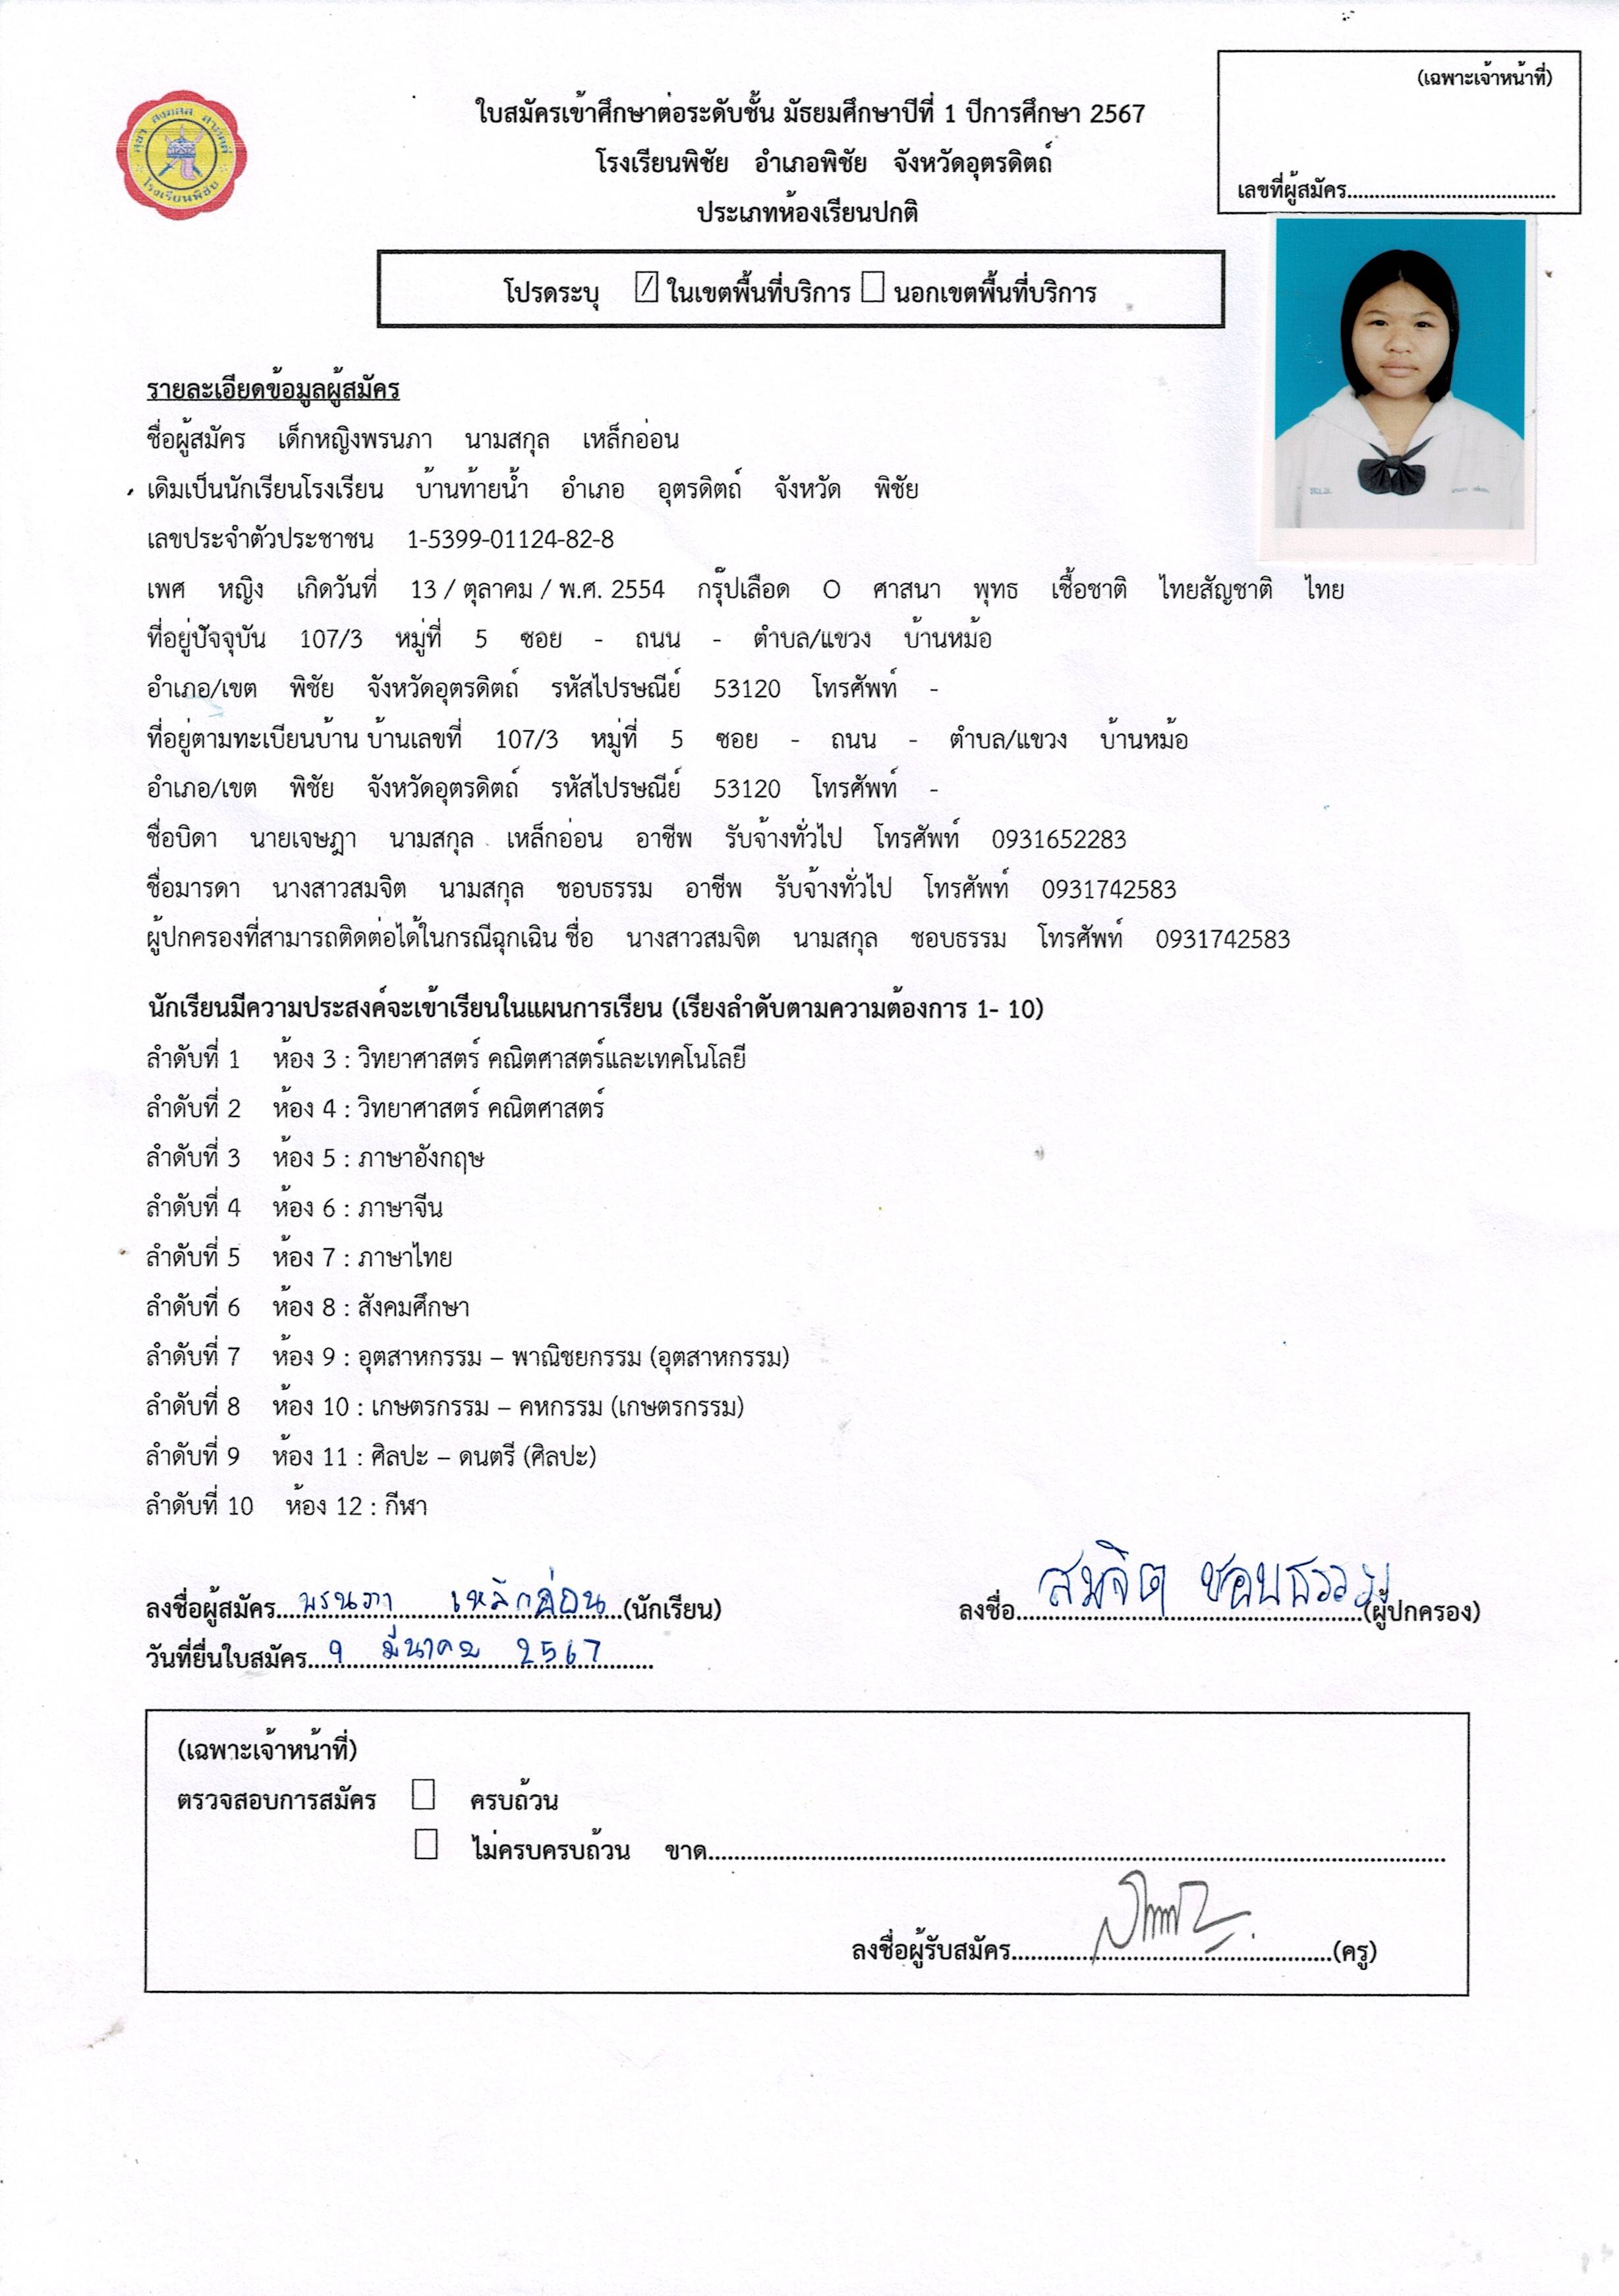 (เฉพาะเจ้าหน้าที่)
เลขที่ผู้สมัคร
โรงเรียนพิชัย
ใบสมัครเข้าศึกษาต่อระดับชั้น มัธยมศึกษาปีที่ 1 ปีการศึกษา 2567
โรงเรียนพิชัย อำเภอพิชัย จังหวัดอุตรดิตถ์
ประเภทห้องเรียนปกติ
โปรดระบุ ☑ ในเขตพื้นที่บริการ ☐ นอกเขตพื้นที่บริการ
รายละเอียดข้อมูลผู้สมัคร
ชื่อผู้สมัคร เด็กหญิงพรนภา นามสกุล เหล็กอ่อน
เดิมเป็นนักเรียนโรงเรียน บ้านท้ายน้ำ อำเภอ อุตรดิตถ์ จังหวัด พิชัย
เลขประจำตัวประชาชน 1-5399-01124-82-8
เพศ หญิง เกิดวันที่ 13 / ตุลาคม / พ.ศ. 2554 กรุ๊ปเลือด O ศาสนา พุทธ เชื้อชาติ ไทยสัญชาติ ไทย
ที่อยู่ปัจจุบัน 107/3 หมู่ที่ 5 ซอย - ถนน - ตำบล/แขวง บ้านหม้อ
อำเภอ/เขต พิชัย จังหวัดอุตรดิตถ์ รหัสไปรษณีย์ 53120 โทรศัพท์ -
ที่อยู่ตามทะเบียนบ้าน บ้านเลขที่ 107/3 หมู่ที่ 5 ซอย - ถนน - ตำบล/แขวง บ้านหม้อ
อำเภอ/เขต พิชัย จังหวัดอุตรดิตถ์ รหัสไปรษณีย์ 53120 โทรศัพท์ -
ชื่อบิดา นายเจษฎา นามสกุล เหล็กอ่อน อาชีพ รับจ้างทั่วไป โทรศัพท์ 0931652283
ชื่อมารดา นางสาวสมจิต นามสกุล ชอบธรรม อาชีพ รับจ้างทั่วไป โทรศัพท์ 0931742583
ผู้ปกครองที่สามารถติดต่อได้ในกรณีฉุกเฉิน ชื่อ นางสาวสมจิต นามสกุล ชอบธรรม โทรศัพท์ 0931742583
นักเรียนมีความประสงค์จะเข้าเรียนในแผนการเรียน (เรียงลำดับตามความต้องการ 1- 10)
ลำดับที่ 1 ห้อง 3 : วิทยาศาสตร์ คณิตศาสตร์และเทคโนโลยี
ลำดับที่ 2 ห้อง 4 : วิทยาศาสตร์ คณิตศาสตร์
ลำดับที่ 3 ห้อง 5 : ภาษาอังกฤษ
ลำดับที่ 4 ห้อง 6 : ภาษาจีน
ลำดับที่ 5 ห้อง 7 : ภาษาไทย
ลำดับที่ 6 ห้อง 8 : สังคมศึกษา
ลำดับที่ 7 ห้อง 9 : อุตสาหกรรม – พาณิชยกรรม (อุตสาหกรรม)
ลำดับที่ 8 ห้อง 10 : เกษตรกรรม – คหกรรม (เกษตรกรรม)
ลำดับที่ 9 ห้อง 11 : ศิลปะ – ดนตรี (ศิลปะ)
ลำดับที่ 10 ห้อง 12 : กีฬา
ลงชื่อผู้สมัคร พรนภา เหล็กอ่อน (นักเรียน) ลงชื่อ สมจิต ชอบธรรม (ผู้ปกครอง)
วันที่ยื่นใบสมัคร 9 มีนาคม 2567
(เฉพาะเจ้าหน้าที่)
ตรวจสอบการสมัคร ☐ ครบถ้วน
☐ ไม่ครบครบถ้วน ขาด
ลงชื่อผู้รับสมัคร (ครู)